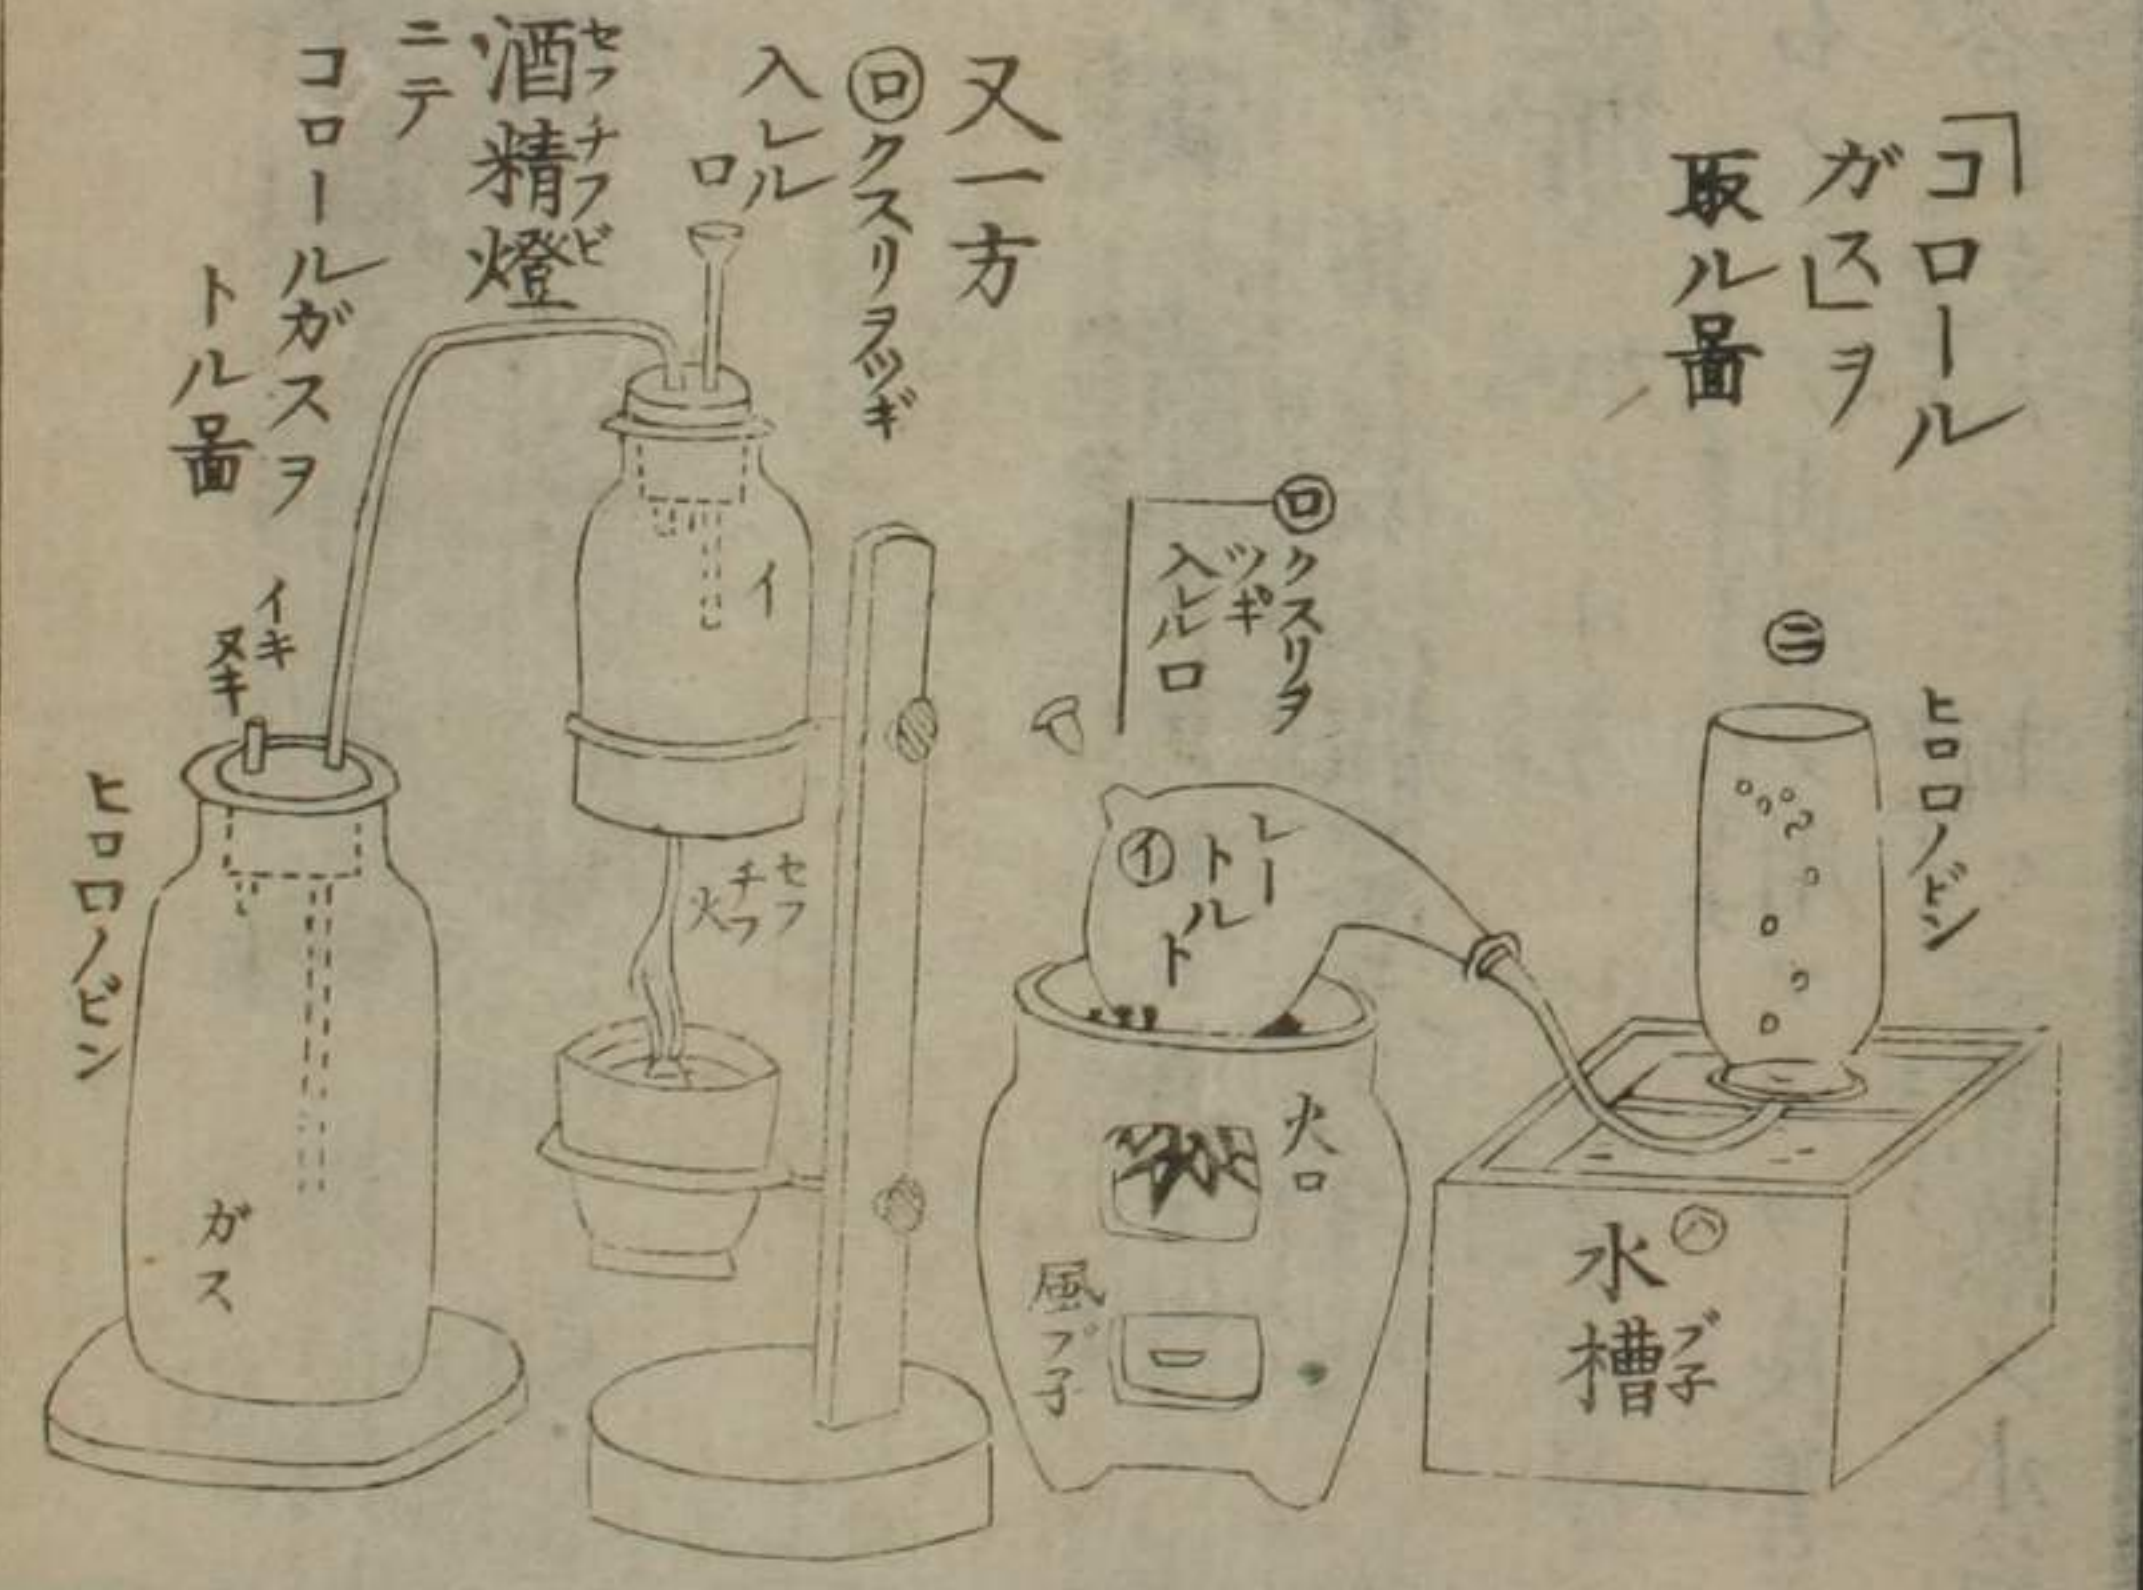 「コロール
ガス」ヲ
取ル圖
㊁
ヒロロノビン
㋺クスリヲ
ツギ
入レル口
㋑
レー
トルト
火口
風ブ子
㋩
水槽
ブ子
又一方
㋺クスリヲツギ
入レル
ロ
酒精燈
セフチフビ
ニテ
コロールガスヲ
トル圖
イ
セフ
チフ
火
イキ
ヌキ
ヒロロノビン
ガス